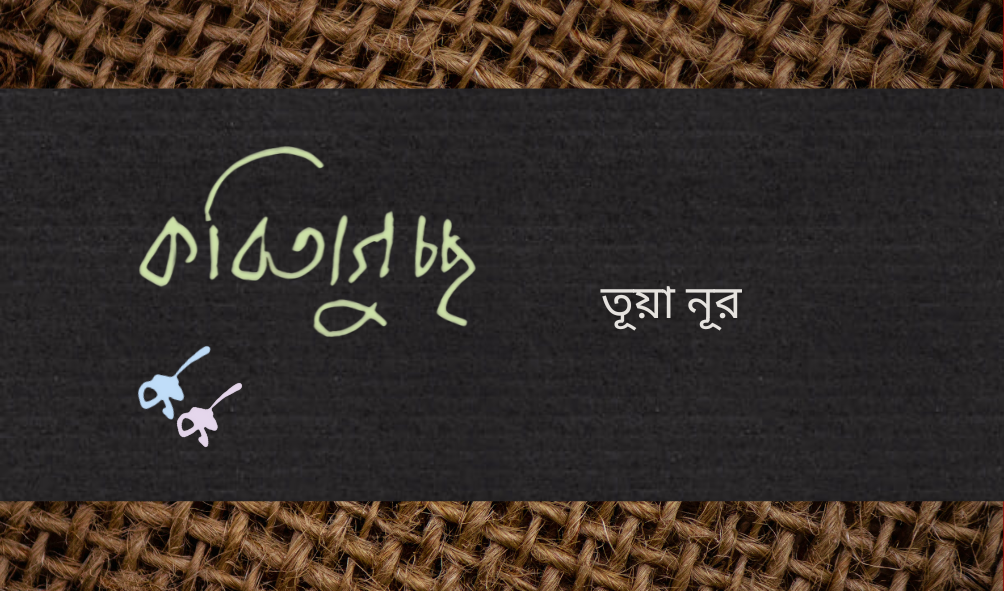 কবিতাগুচ্ছ
তূয়া নূর